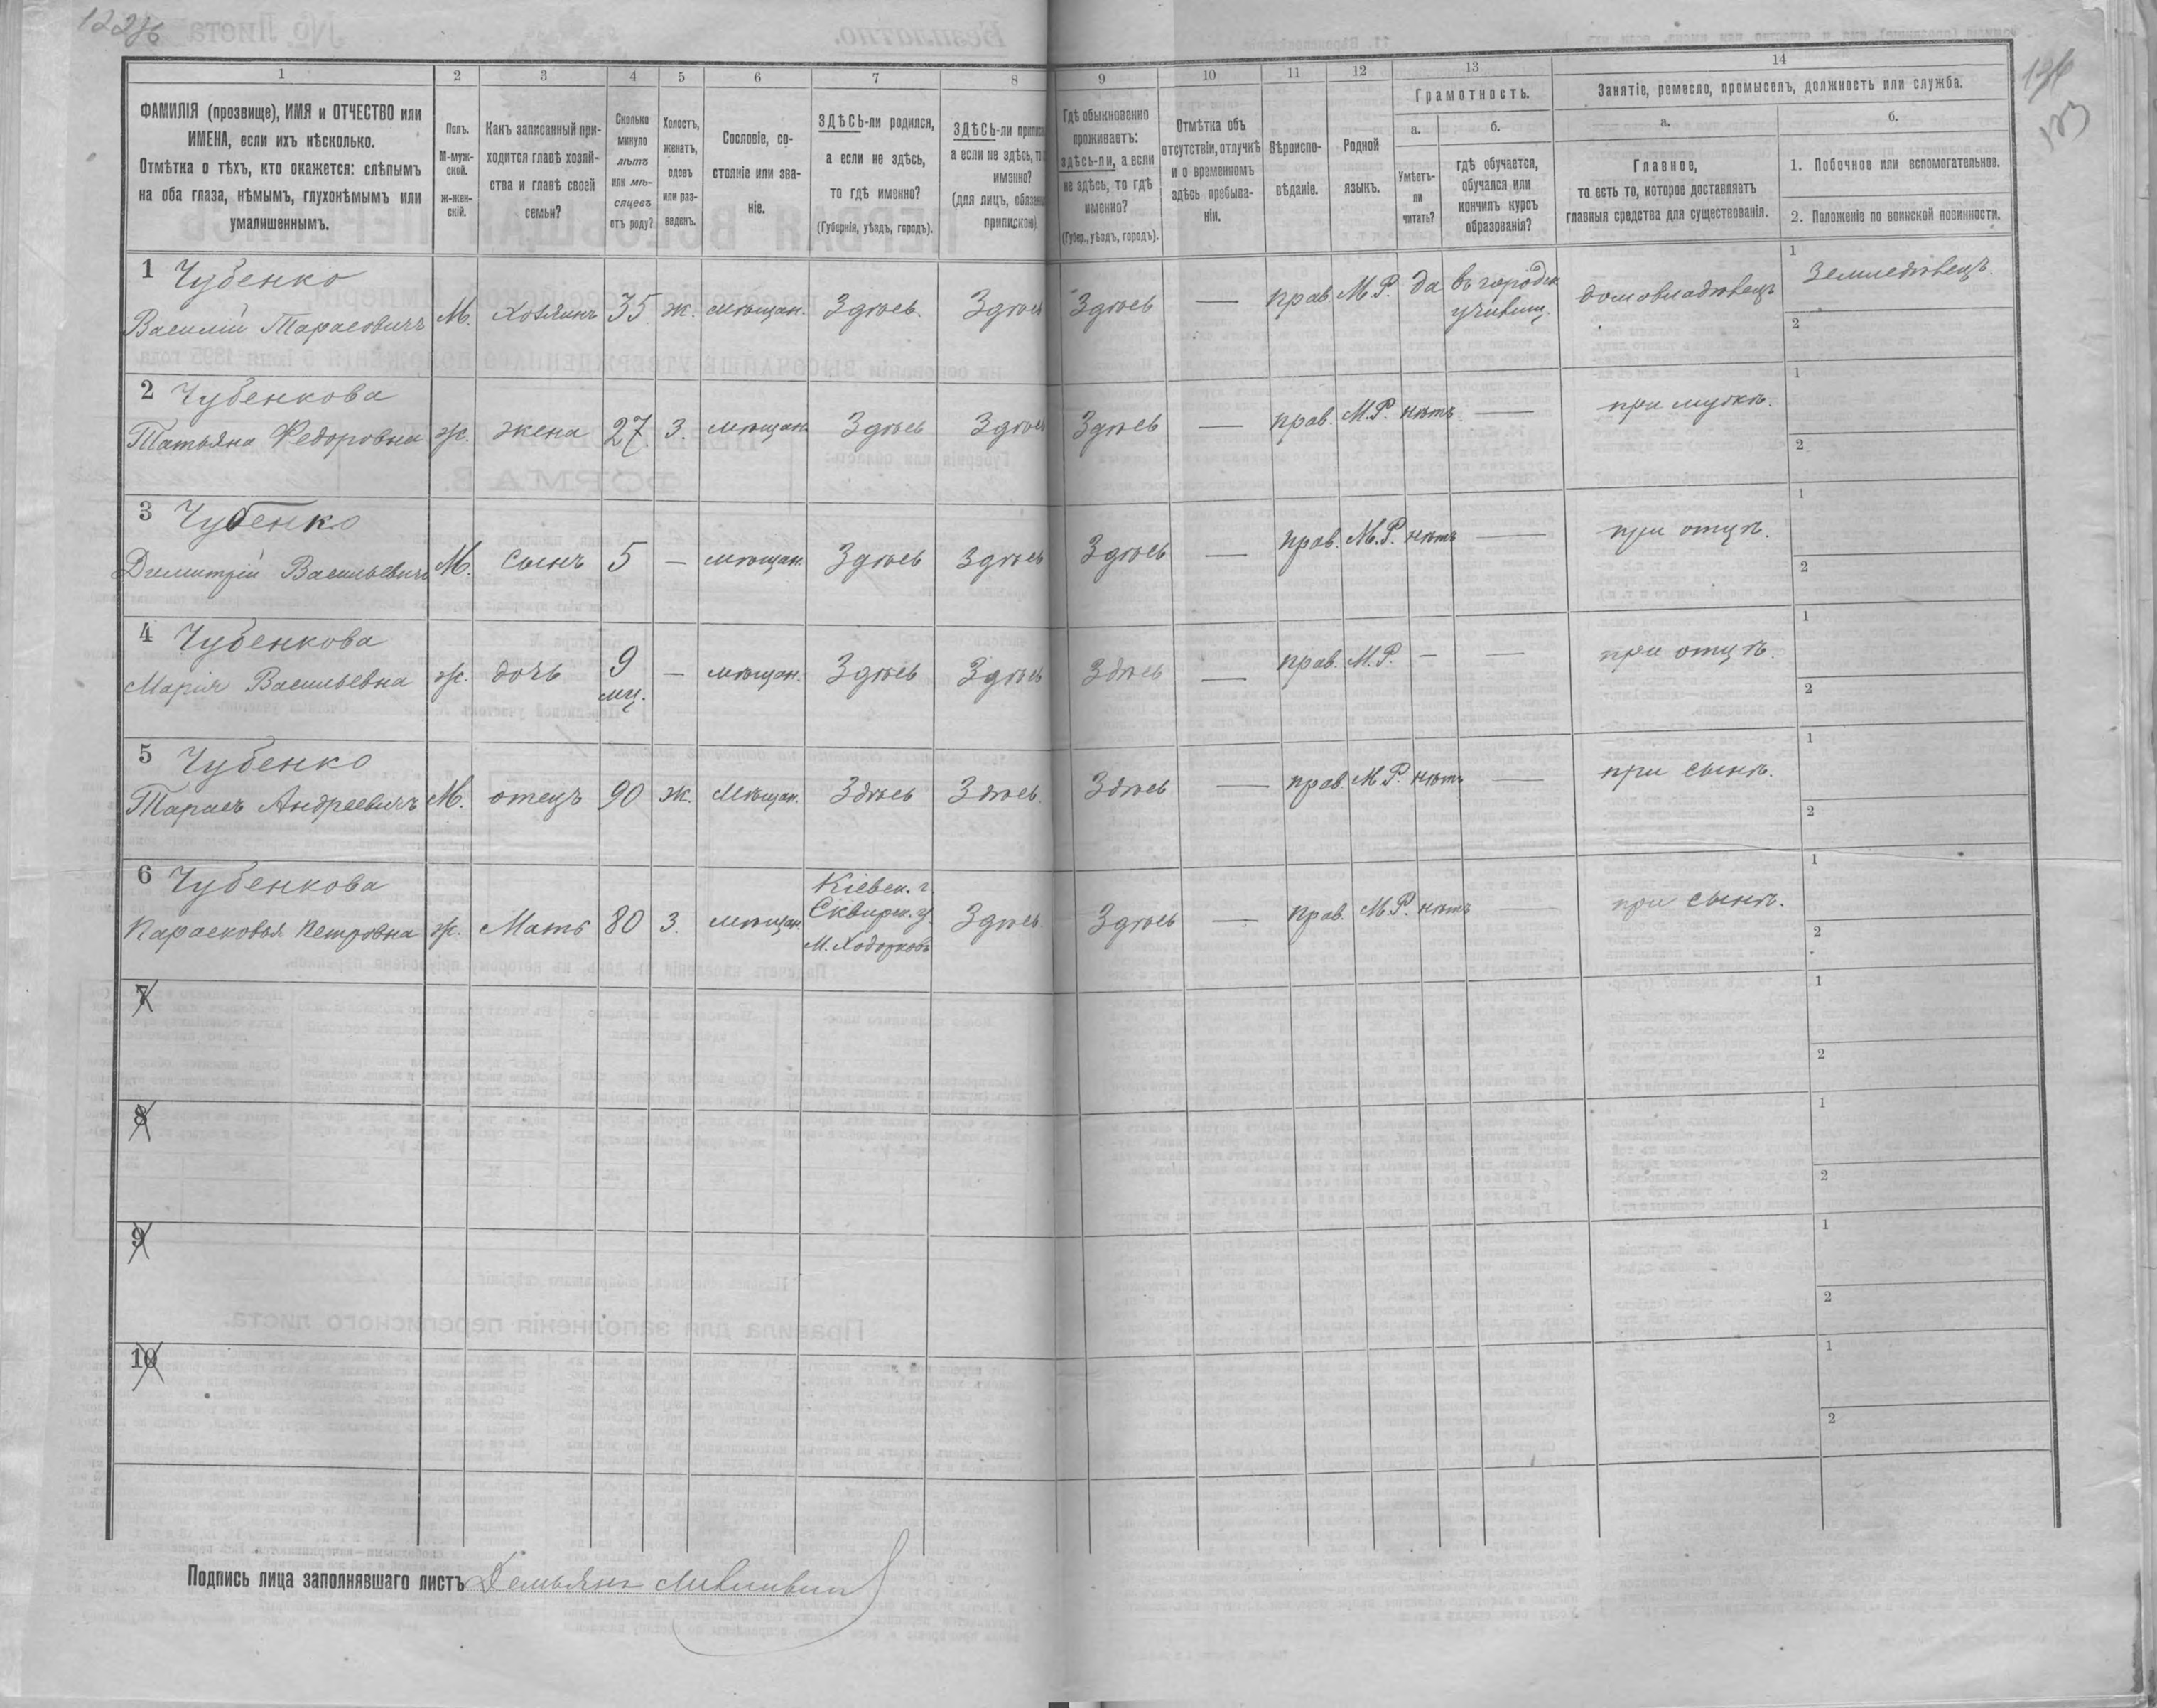 122
1
2
3
4
5
6
7
8
9
10
11
12
13
14
ФАМИЛІЯ (прозвище), ИМЯ и ОТЧЕСТВО или
ИМЕНА, если ихъ нѣсколько.
Отмѣтка о тѣхъ, кто окажется: слѣпымъ
на оба глаза, нѣмымъ, глухонѣмымъ или
умалишеннымъ.
Полъ.
М-муж-
ской.
ж-жен-
скій.
Какъ записанный при-
ходится главѣ хозяй-
ства и главѣ своей
семьи?
Сколько
минуло
лѣтъ
или мѣ-
сяцевъ
отъ роду?
Холостъ,
женатъ,
вдовъ
или раз-
веденъ.
Сословіе, со-
стояніе или зва-
ніе.
ЗДѢСЬ-ли родился,
а если не здѣсь,
то гдѣ именно?
(Губернія, уѣздъ, городъ).
ЗДѢСЬ-ли
а если не здѣсь,
именно?
(для лицъ,
припискою)
Гдѣ обыкновенно
проживаетъ:
здѣсь-ли, а если
не здѣсь, то гдѣ
именно?
(Губер., уѣздъ, городъ).
Отмѣтка объ
отсутствіи, отлучкѣ
и о временномъ
здѣсь пребыва-
ніи.
Вѣроиспо-
вѣданіе.
Родной
языкъ.
Грамотность.
а.
б.
Умѣетъ-
ли
читать?
гдѣ обучается,
обучался или
кончилъ курсъ
образованія?
Занятіе, ремесло, промыселъ, должность или служба.
а.
б.
Главное,
то есть то, которое доставляетъ
главныя средства для существованія.
1. Побочное или вспомогательное.
2. Положеніе по воинской повинности.
1 Чубенко
Василій Тарасовичъ М. Хозяинъ 35 ж. мѣщан. Здѣсь. Здѣсь Здѣсь — прав М.Р. да въ городск. училищ. домовладѣлецъ
1 Земледѣлецъ.
2
2 Чубенкова
Татьяна Федоровна ж. жена 27. З. мѣщан. Здѣсь Здѣсь Здѣсь — прав. М.Р. нѣтъ — при мужѣ.
1
2
3 Чубенко
Димитрій Васильевичъ М. Сынъ 5 — мѣщан. Здѣсь Здѣсь Здѣсь — прав. М.Р. нѣтъ — при отцѣ.
1
2
4 Чубенкова
Марія Васильевна ж. дочь 9 мц. — мѣщан. Здѣсь Здѣсь Здѣсь — прав. М.Р. — — при отцѣ.
1
2
5 Чубенко
Тарасъ Андреевичъ М. отецъ 90 ж. мѣщан. Здѣсь Здѣсь. Здѣсь — прав. М.Р. нѣтъ — при сынѣ.
1
2
6 Чубенкова
Парасковья Петровна ж. Мать 80 З. мѣщан. Кіевск. г. Сквирск. у. М. Ходорковъ Здѣсь. Здѣсь — прав. М.Р. нѣтъ — при сынѣ.
1
2
7
1
2
8
1
2
9
1
2
10
1
2
Подпись лица заполнявшаго листъ Демьянъ